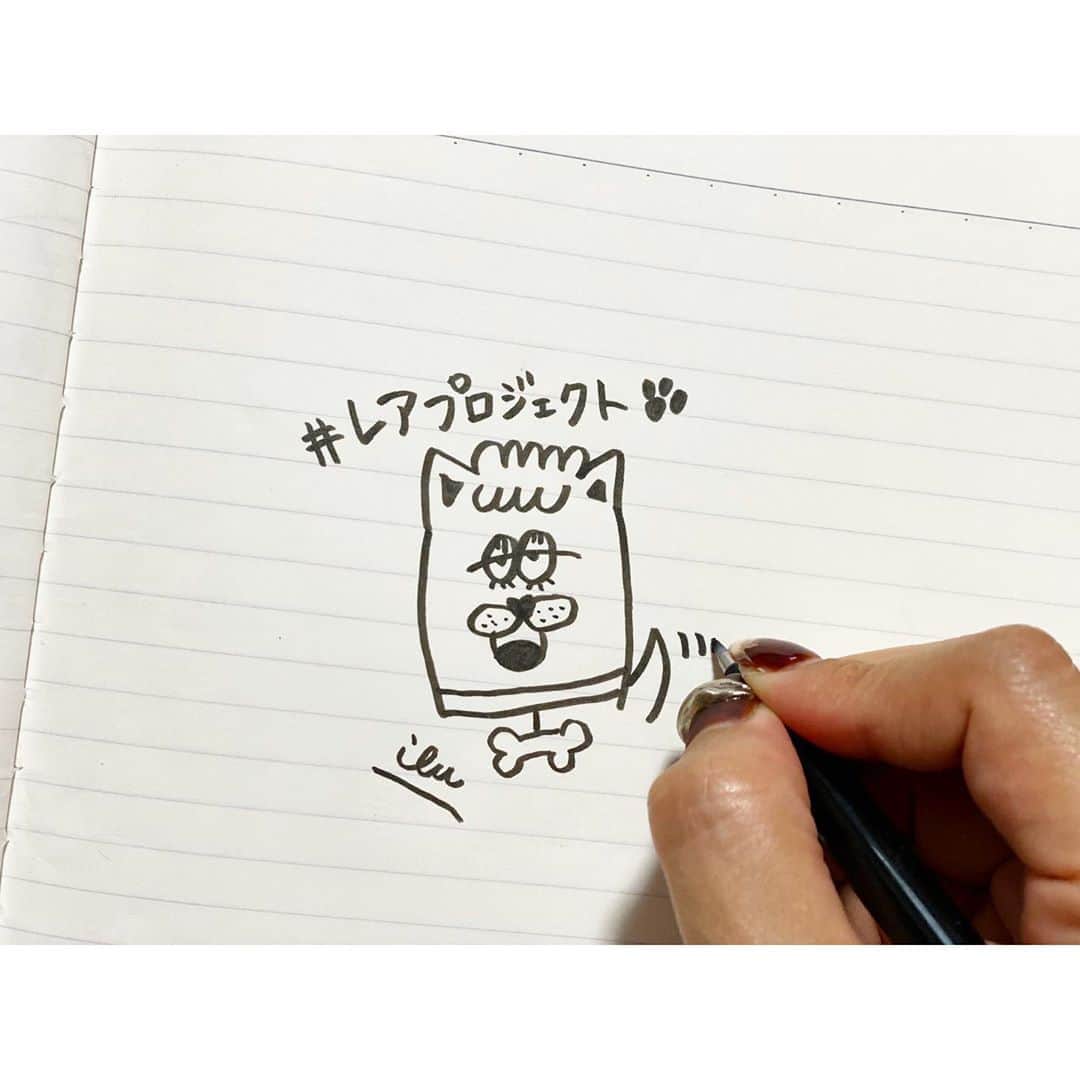 #レアプロジェクト